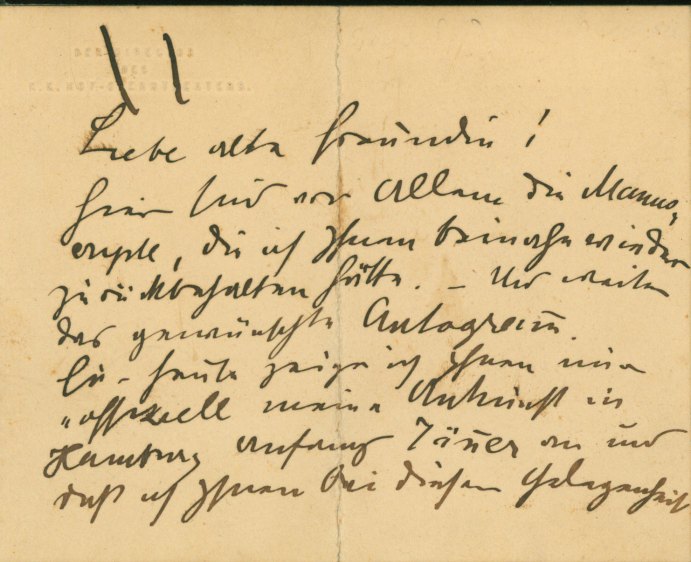 DER DIRECTOR
DES
K. K. HOF-OPERNTHEATERS.
Liebe alte Freundin!
Hier sind vor Allem die Manus=
cripte, die ich Ihnen beinahe wieder
zurückbehalten hätte. – Und weiter
das gewünschte Autogramm.
– heute zeige ich Ihnen nur
"offiziell meine Ankunft in
Hamburg anfang Jänner an und
daß ich Ihnen bei dieser Gelegenheit